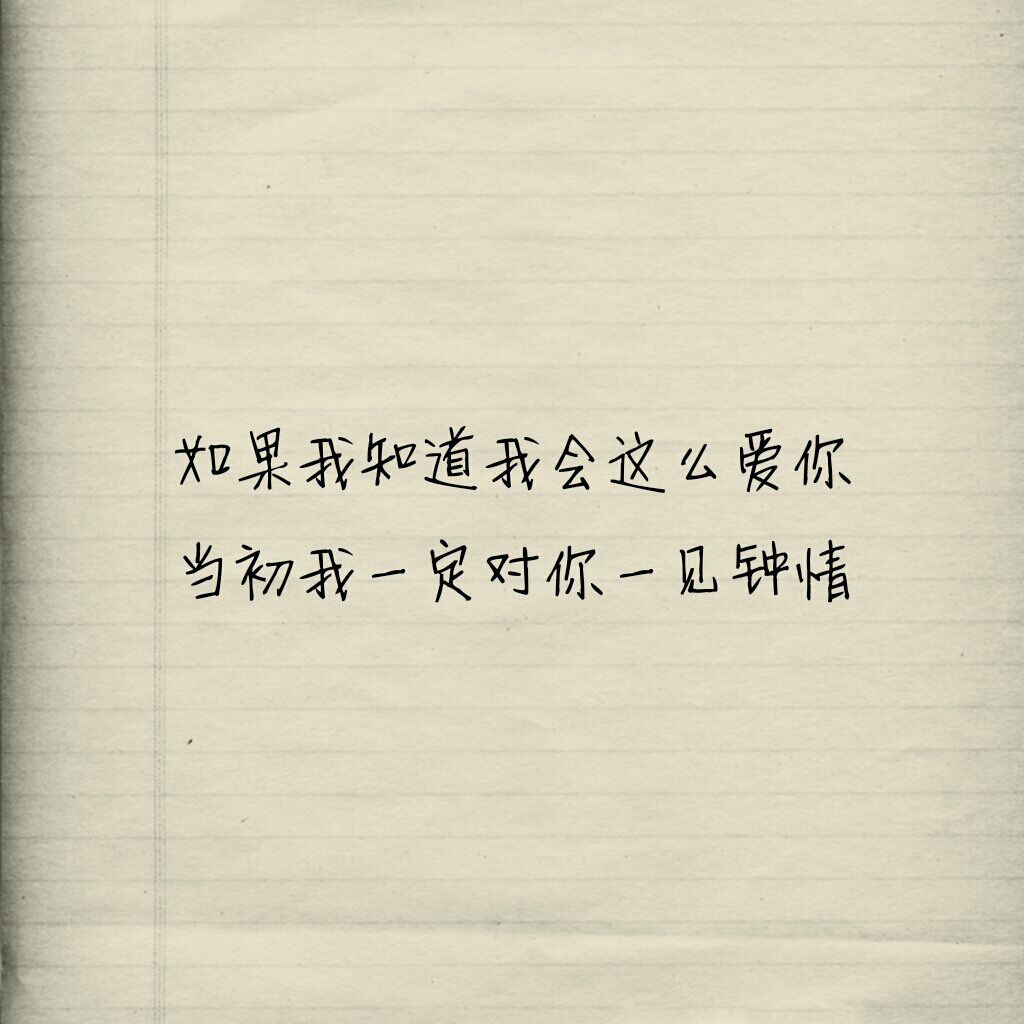 如果我知道我会这么爱你
当初我一定对你一见钟情